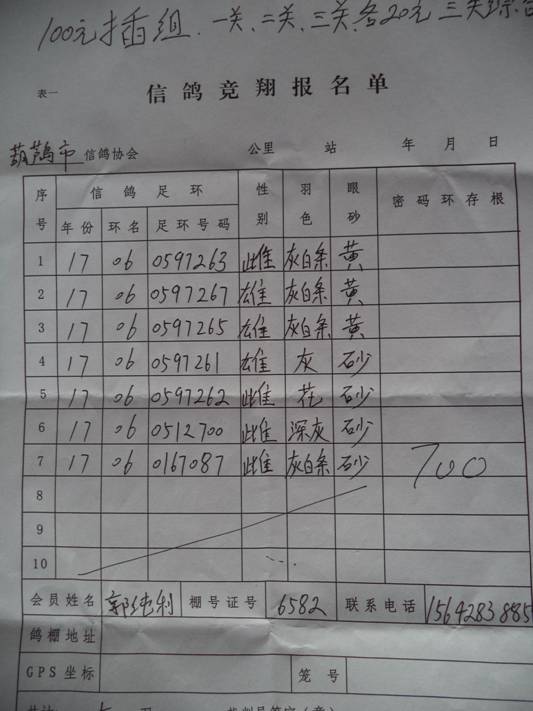 100元插组、一关、二关、三关各20元 三关综合
表一
信鸽竞翔报名单
葫芦岛市 信鸽协会 公里 站 年 月 日
序号 信鸽足环 性别 羽色 眼砂 密码环存根
年份 环名 足环号码
1 17 06 0597263 雌 灰白条 黄
2 17 06 0597267 雄 灰白条 黄
3 17 06 0597265 雄 灰白条 黄
4 17 06 0597261 雄 灰 砂
5 17 06 0597262 雌 花 砂
6 17 06 0512700 雌 深灰 砂
7 17 06 0167087 雌 灰白条 砂 700
8
9
10
会员姓名 郭纯利 棚号证号 6582 联系电话 1564283885
鸽棚地址
GPS坐标 笼号